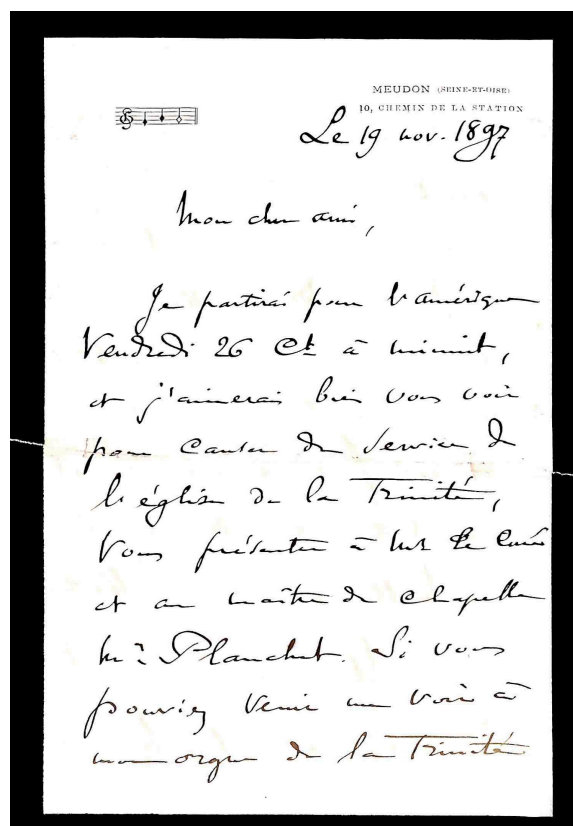 MEUDON (SEINE-ET-OISE)
10, CHEMIN DE LA STATION
Le 19 nov. 1897
Mon cher ami,
Je partirai pour l'amérique
Vendredi 26 Ct à minuit,
et j'aimerais bien vous voir
pour causer du service de
l'église de la Trinité,
vous présenter à Mr le Curé
et au maître de chapelle
Mr Planchet. Si vous
pouviez venir me voir à
mon orgue de la Trinité